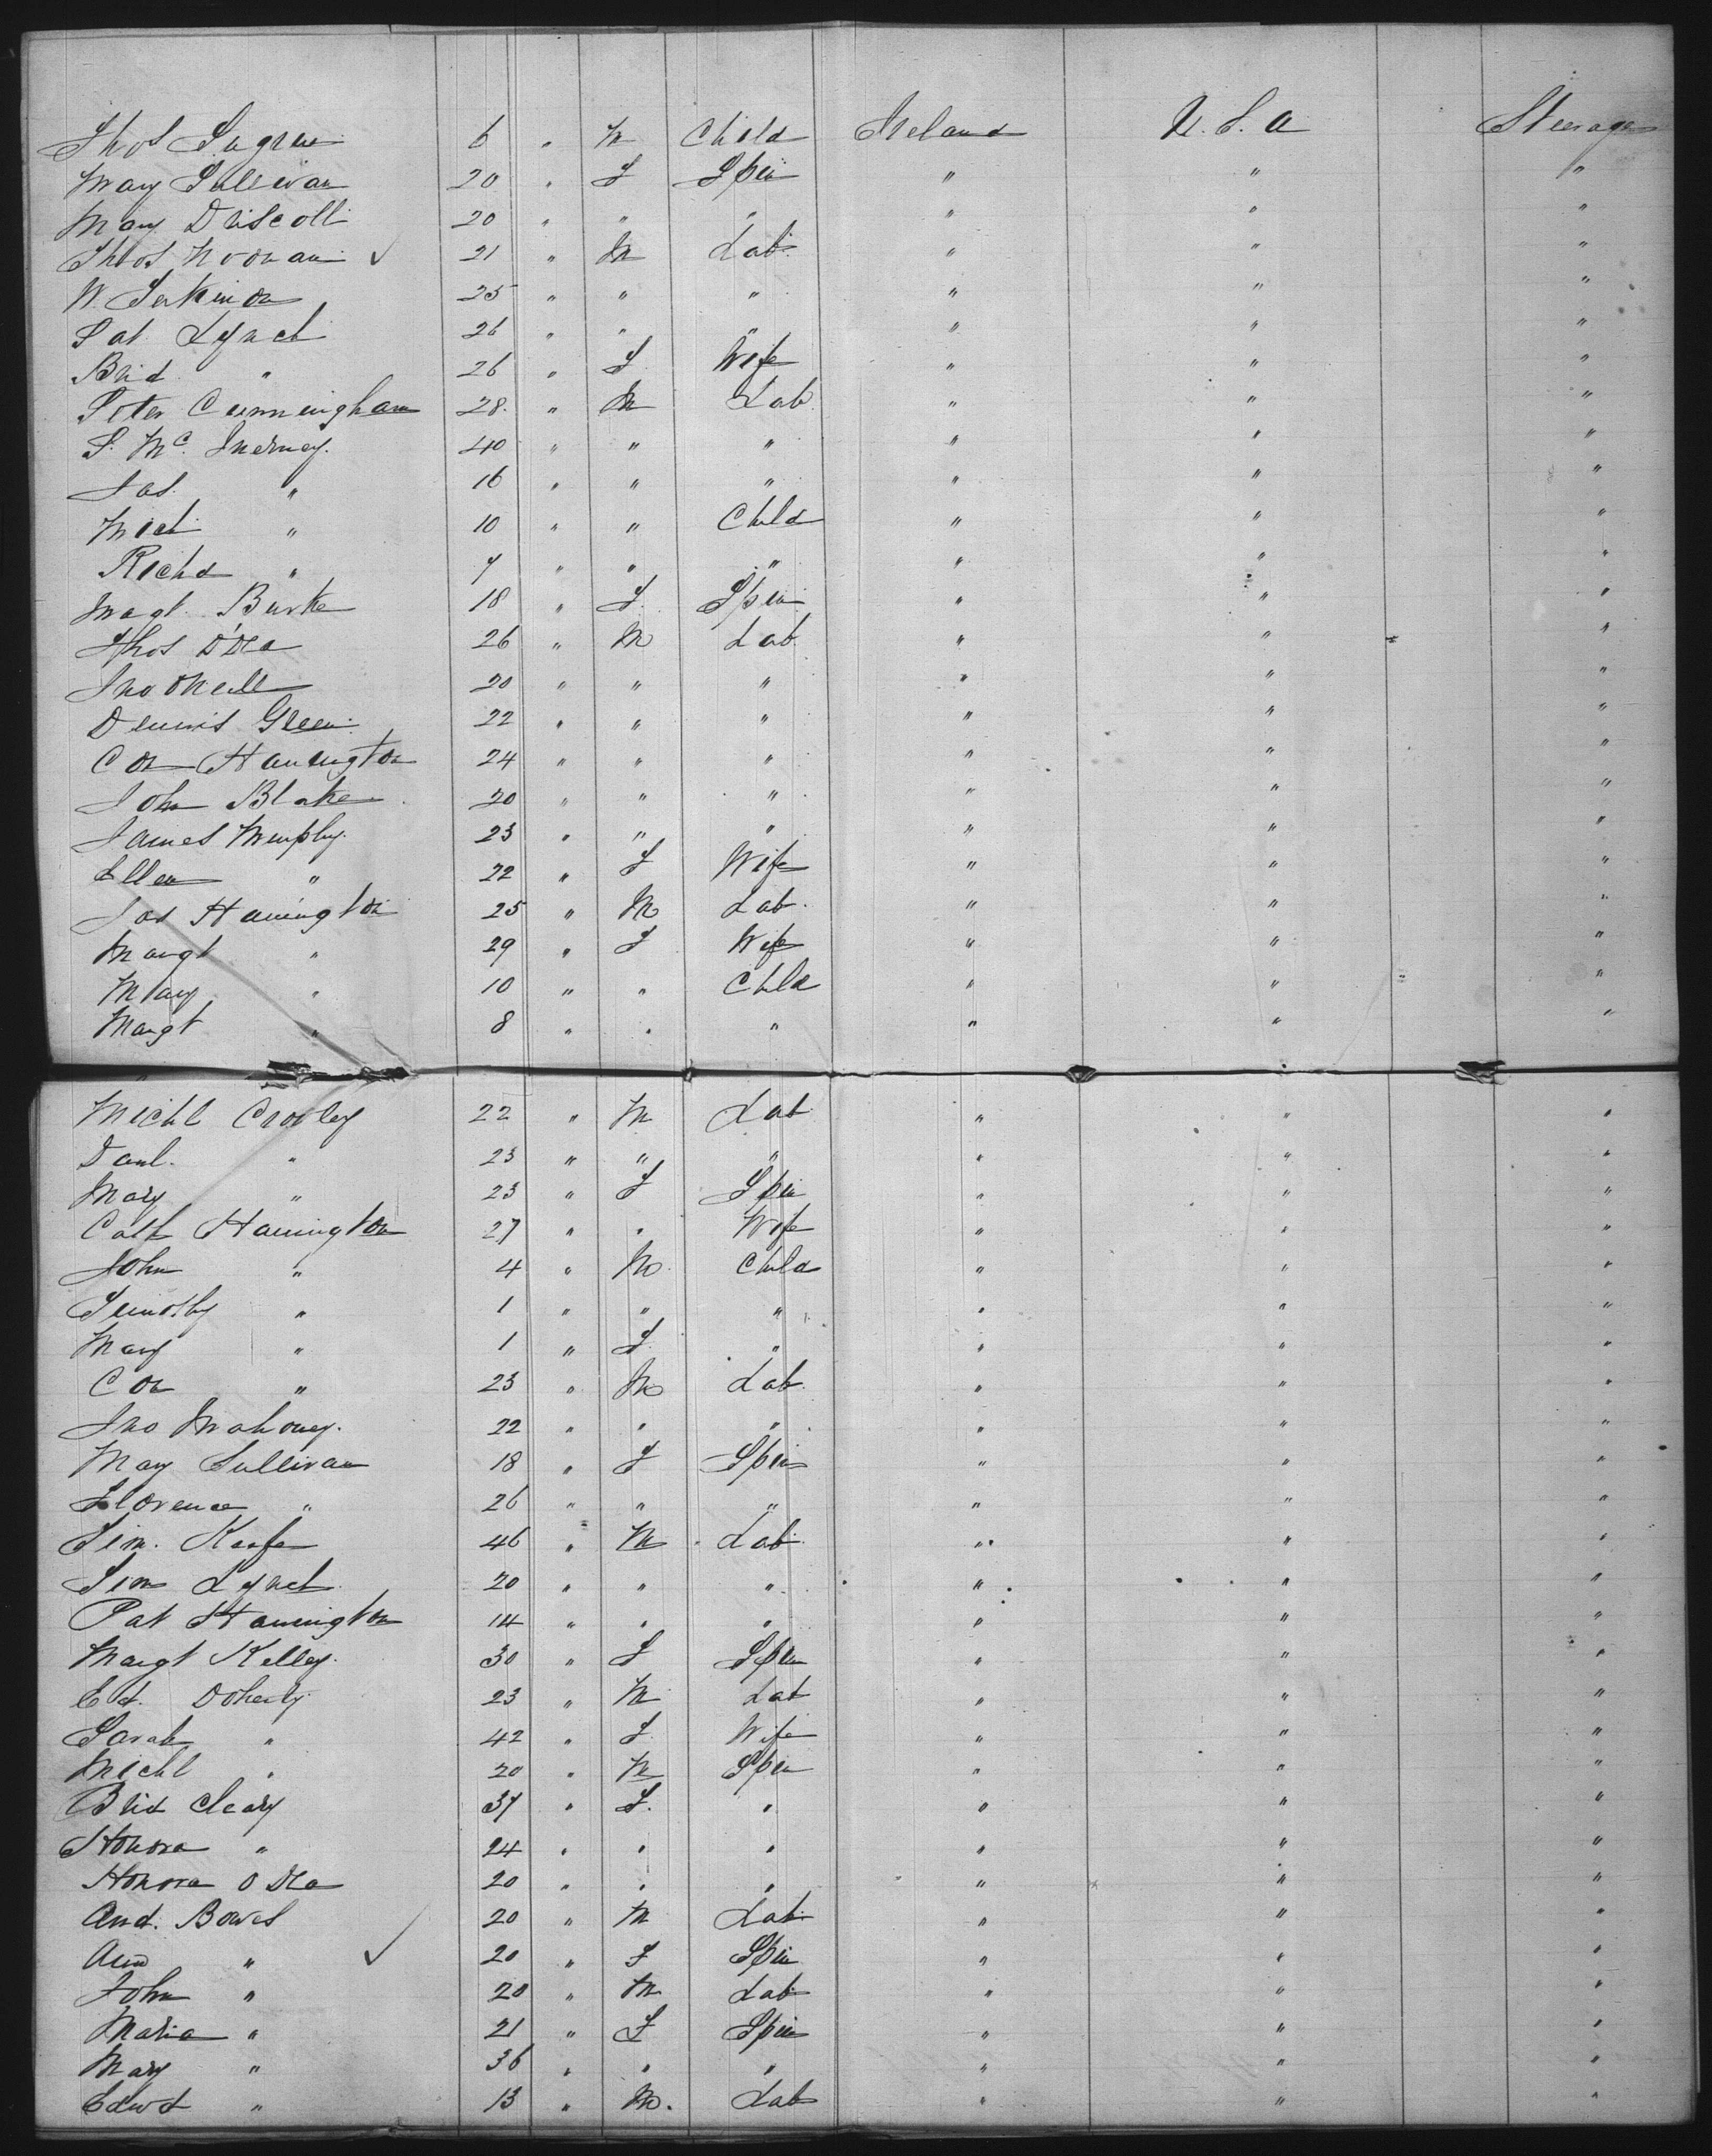 Thos Sugrue 6 " M Child Ireland U.S.A Steerage
Mary Sullivan 20 " F Spin " " "
Mary Driscoll 20 " " " " " "
Thos Noonan ✓ 21 " M Lab. " " "
W. 25 " " " " " "
Pat Lynch 26 " " " " " "
Brid " 26 " F Wife " " "
Peter Cunningham 28 " M Lab " " "
P. Mc. Inerney. 40 " " " " " "
Jas. " 16 " " " " " "
Mich " 10 " " Child " " "
Richd " 7 " " " " " "
Magt Burke 18 " F. Spin " " "
Thos O'Dea 26 " M Lab. " " "
Jno ONeill 20 " " " " " "
Dennis Green 22 " " " " " "
Con Harrington 24 " " " " " "
John Blake 20 " " " " " "
James Murphy. 23 " " " " " "
Ellen " 22 " F Wife " " "
Jas Harrington 25 " M Lab. " " "
Margt " 29 " F Wife " " "
Mary " 10 " " Chld " " "
Margt " 8 " " " " " "
Michl Crowley 22 " M Lab " " "
Danl. " 23 " " " " " "
Mary " 23 " F Spin " " "
Cath Harrington 27 " " Wife " " "
John " 4 " M Child " " "
Timothy " 1 " " " " " "
Mary " 1 " F " " " "
Con " 23 " M Lab. " " "
Jno Mahoney. 22 " " " " " "
Mary Sullivan 18 " F Spin " " "
Florence " 26 " " " " " "
Tim. Keefe 46 " M Lab " " "
Tim Lynch 20 " " " " " "
Pat Harrington 14 " " " " " "
Margt Kelley. 30 " F Spin " " "
Ed. Doherty 23 " M Lab " " "
Sarah " 42 " F Wife " " "
Michl " 20 " M Spin " " "
Brid Cleary 37 " F. " " " "
Honora " 24 " " " " " "
Honora O Dea 20 " " " " " "
And. Bowes 20 " M Lab " " "
Ann " ✓ 20 " F Spin " " "
John " 20 " M Lab " " "
Maria " 21 " F Spin " " "
Mary " 36 " " " " " "
Edwd " 13 " M. Lab " " "